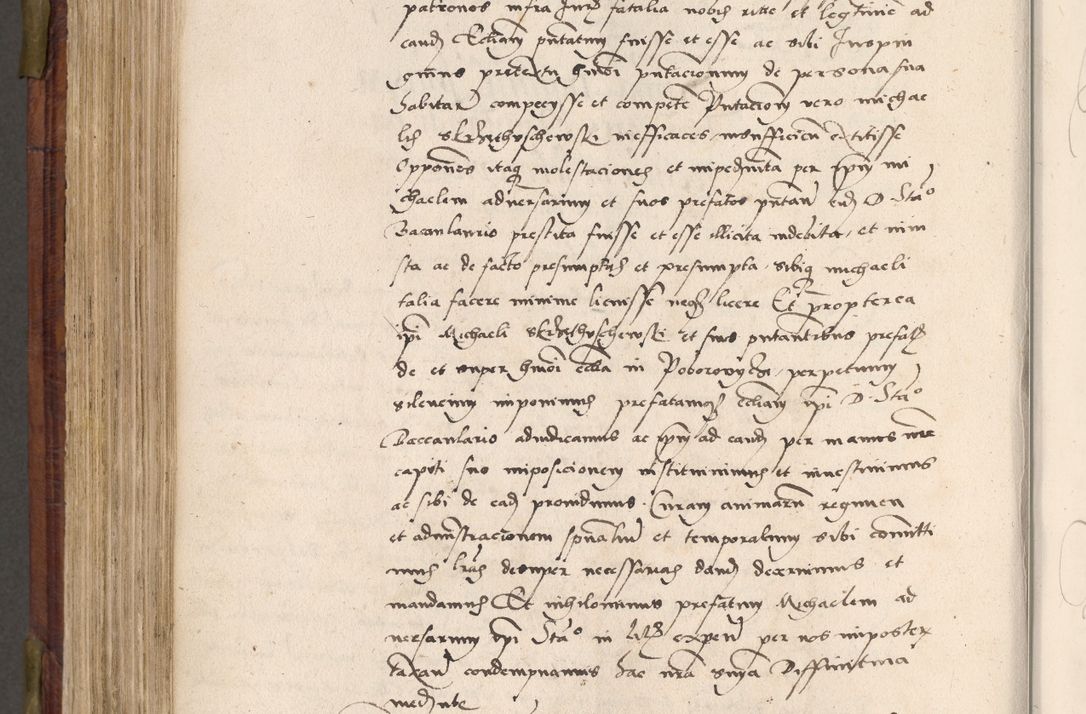 patronos infra Jurẽ fatalia nobis rite et legitime ad
eand Eccliam pñtatum fuisse et esse ac sibi
pretextu hmõi pñtacionum de persona sua
habitar compecysse et compete Pñtaciony vero michae
lis Skrzthuschewski inefficaces insufficien extitisse
Oppones itaq molestaciones et impedimta per ipm mi
chaelem adversarium et suos prefatos pñtan eid D Sta°
Baccanlaurio prestita fuisse et esse illicita indebita et iniu
sta ac de facto presumptas et presumpta sibiq michaeli
talia facere minime licuisse neq licere Et propterea
ipi Michaeli Skrzthuschewski et suis pntantibus prefat
de et super hmõi eccla in Poborowycze perpetuum
silencium imponimus prefatamq eccliam ipi D Sta°
Baccanlario adiudicamus ac ipm ad eand per manus nre
capiti suo imposicionem instituimus et investimus
ac sibi de ead providimus Curam animarum regimen
et administracionem spualium et temporalium sibi comitti
mus lras desuper necessarias dand decrevimus et
mandamus Et nihilominus prefatum Michaelem ad
versarium ipi Sta° in litis expen per nos imposter
taxan condempnamus hac nra snia Diffinitiva
mediante